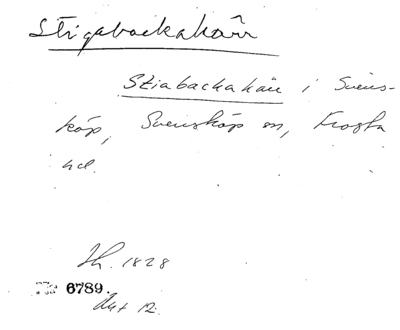 Stigabackakärr
Stiabackakärr i Svens-
köp, Svensköp sn, Frosta
hd.
Sk. 1828
No 6789.
Akt 12.